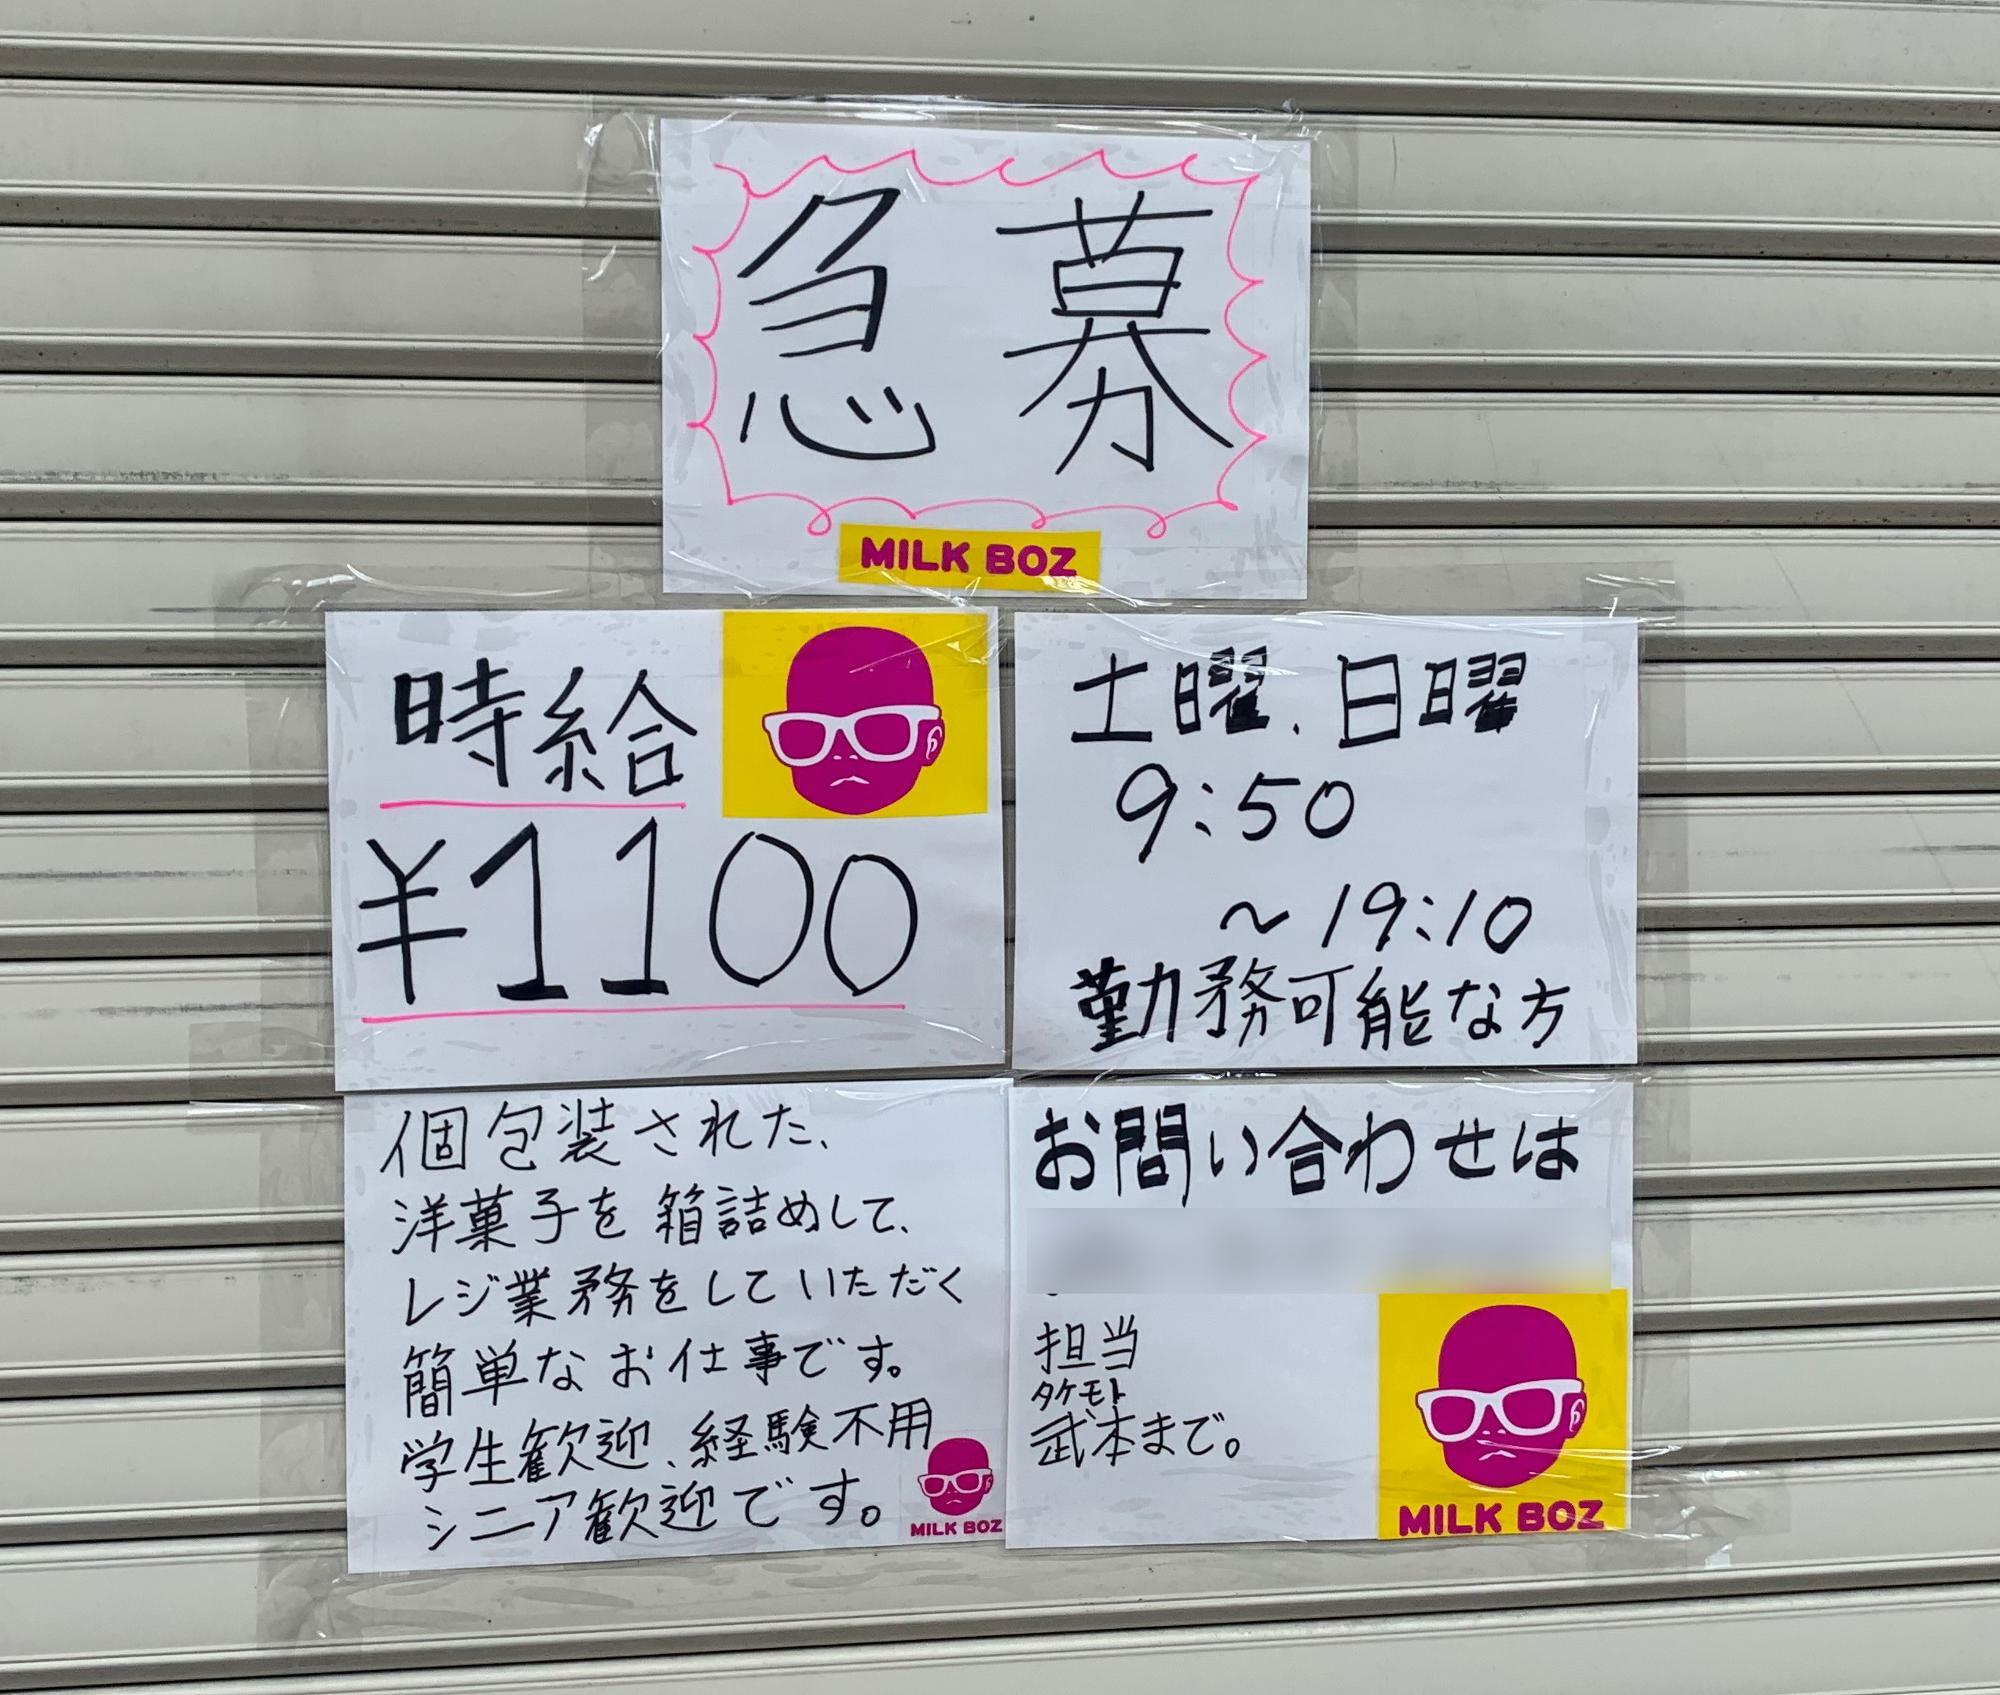 急募
MILK BOZ
時給
¥1100
土曜、日曜
9:50
～19:10
勤務可能な方
個包装された、
洋菓子を箱詰めして、
レジ業務をしていただく
簡単なお仕事です。
学生歓迎、経験不用
シニア歓迎です。
MILK BOZ
お問い合わせは
担当
タケモト
武本まで。
MILK BOZ